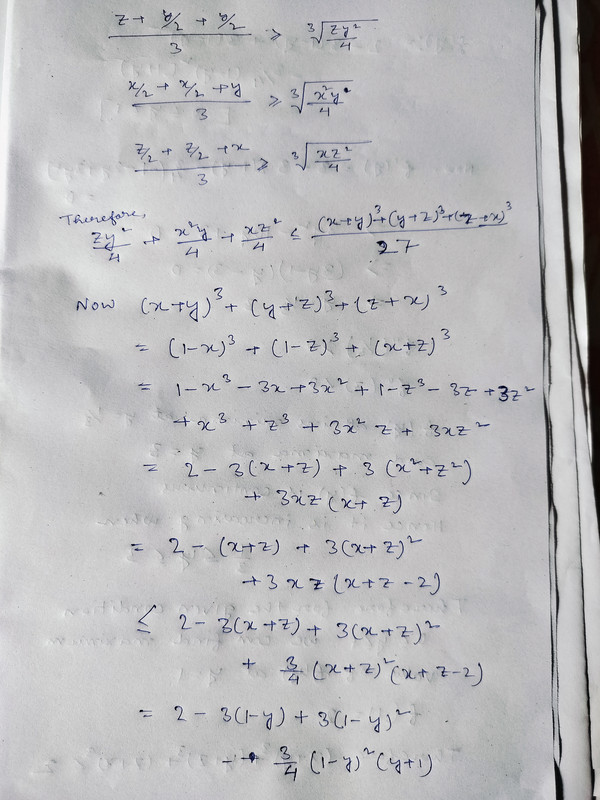 (z + y/2 + y/2)/3 ≥ ∛(zy²/4)
(x/2 + x/2 + y)/3 ≥ ∛(x²y/4)
(z/2 + z/2 + x)/3 ≥ ∛(xz²/4)
Therefore,
zy²/4 + x²y/4 + xz²/4 ≤ ((x+y)³+(y+z)³+(z+x)³)/27
Now (x+y)³ + (y+z)³ + (z+x)³
= (1-x)³ + (1-z)³ + (x+z)³
= 1-x³-3x+3x² + 1-z³-3z+3z²
+x³ + z³ + 3x²z + 3xz²
= 2-3(x+z) + 3(x²+z²)
+ 3xz(x+z)
= 2-(x+z) + 3(x+z)²
+3xz(x+z-2)
≤ 2-3(x+z) + 3(x+z)²
+ 3/4 (x+z)²(x+z-2)
= 2-3(1-y) + 3(1-y)²
- 3/4 (1-y)²(y+1)